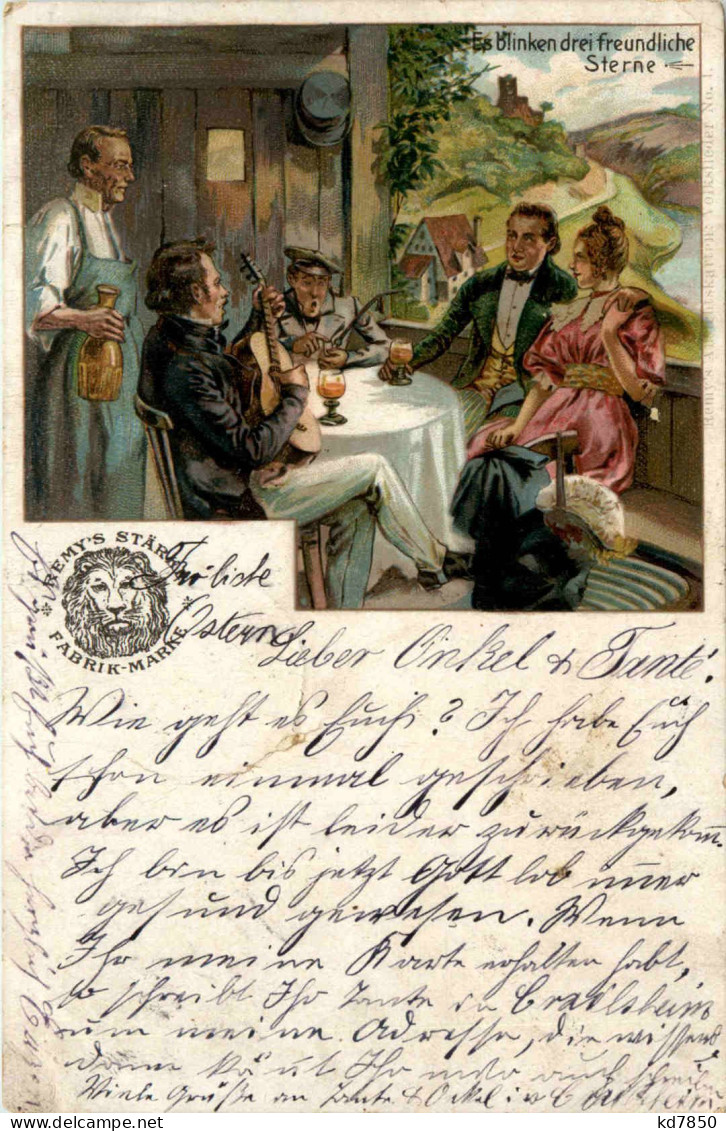 Es blinken drei freundliche
Sterne
Volkslieder No. 1.
REMY'S STÄRKE
FABRIK-MARKE
Fröliche
Ostern
Lieber Onkel & Tante!
Wie geht es Euch? Ich habe Euch
schon einmal geschrieben,
aber es ist leider zurückgekom.
Ich bin bis jetzt Gott lob imer
gesund gewesen. Wenn
Ihr meine Karte erhalten habt,
so schreibt Ihr Tante in Crailsheim
um meine Adresse, die wissens
dann könt Ihr mir auch schreiben
Viele Grüße an Tante & Onkel
kd7850